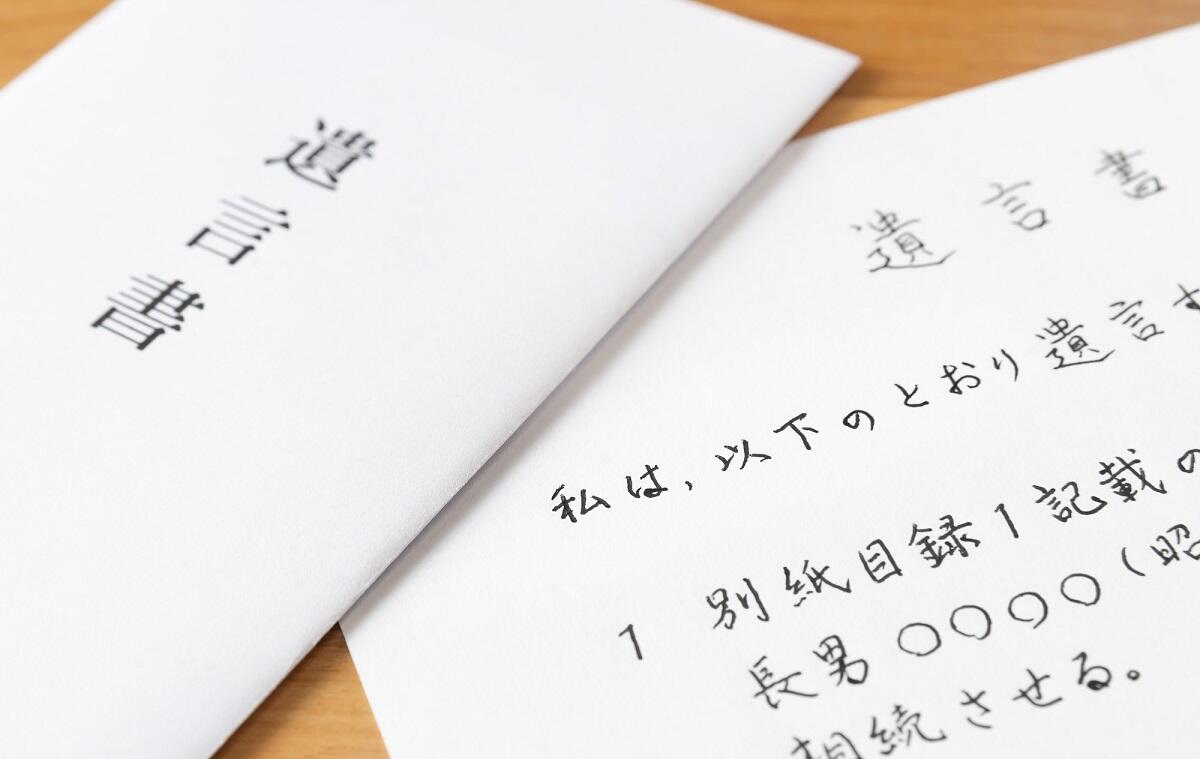 遺言書
遺言書
私は,以下のとおり遺言す
1 別紙目録1記載の
長男〇〇〇〇(昭
相続させる。